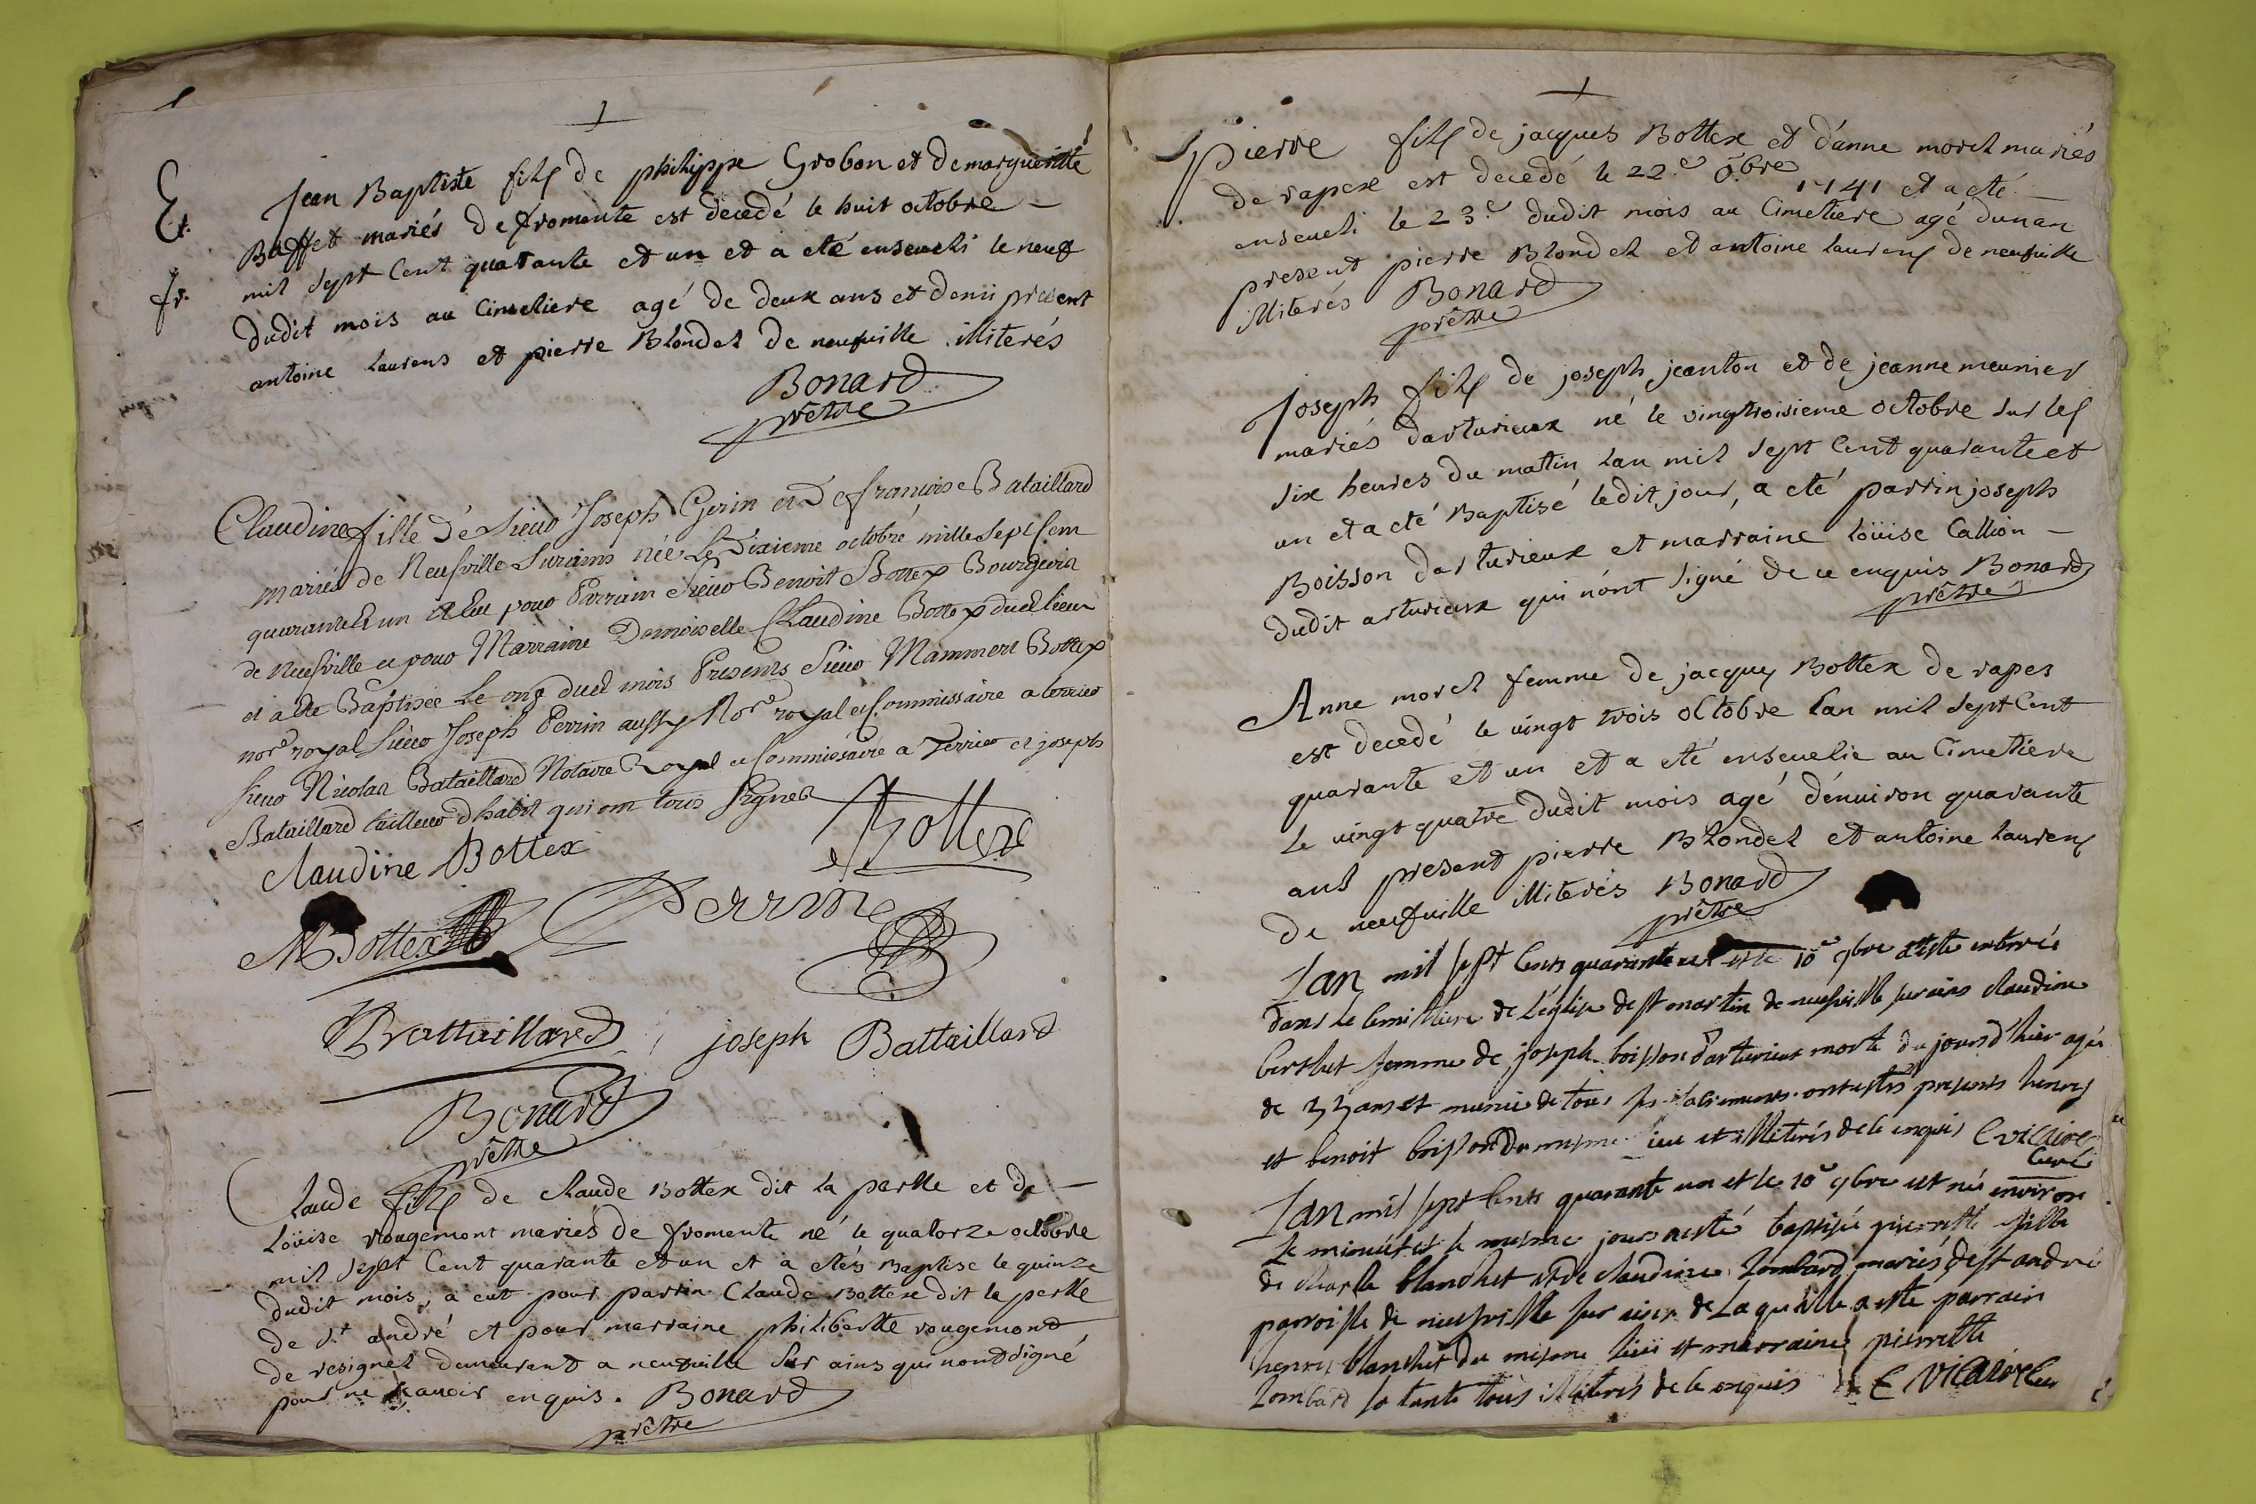 Jean Baptiste fils de philippe Grobon et de margueritte
Baffet mariés de fromente est decedé le huit octobre
mil sept Cent quarante et un et à eté enseveli le neuf
dudit mois au Cimetiere agé de deux ans et demi present
antoine Laurens et pierre Blondel de neufville illiterés
Bonard
prêtre
Claudine fille de Sieur Joseph Perin et De françoise Bataillard
mariés de Neufville Surains née Le Dixieme octobre mille sept Cent
quarante et un a Eu pour Parrain Sieur Benoit Bottex Bourgeois
de Neufville et pour Marraine Demoiselle Claudine Bottex dud lieu
et a été Baptisée Le onze dud mois Presents Sieur Mammert Bottex
nore royal Sieur Joseph Perrin aussy Nore royal et Commissaire a terrier
Sieur Nicolas Bataillard Notaire Royal et Commissaire a Terrier et joseph
Bataillard tailleur d'habit qui ont tous Signés
Bottex
Claudine Bottex
Perrin
MBottex
Battaillard
joseph Battaillard
Bonard
prêtre
Claude fils de Claude Bottex dit la perle et de
Loüise rougemont mariés de fromente né le quatorze octobre
mil sept Cent quarante et un et à etés Baptisé le quinze
dudit mois, à eut pour parrin Claude Bottex dit la perle
de St andré et pour marraine philiberte rougemond
de resignel demeurant a neufville sur ains qui n'ont signé
pour ne sçavoir enquis. Bonard
prêtre
Pierre fils de jacques Bottex et d'anne morel mariés
de rapex est decedé le 22e 8bre 1741 et a eté
enseveli le 23e dudit mois au Cimetiere agé d'un an
present pierre Blondel et antoine laurens de neufville
illiterés Bonard
prêtre
Joseph fils de joseph jeanton et de jeanne meunier
mariés d'arturieux né le vingtroisieme octobre sur les
six heures du matin lan mil sept Cent quarante et
un et a eté Baptisé ledit jour, a eté parrin joseph
Boisson d'arturieux et marraine Loüise Callion
dudit arturieux qui n'ont signé de ce enquis Bonard
prêtre
Anne morel femme de jacques Bottex de rapes
est decedé le vingt trois octobre lan mil sept Cent
quarante et un et a eté ensevelie au Cimetiere
le vingt quatre dudit mois agé d'environ quarante
ans present pierre Blondel et antoine laurens
de neufville illiterés Bonard
prêtre
Lan mil sept Cents quarante un et le 10e 9bre a esté enterrée
dans le Cimittiere de L'eglise de st martin de neufville sur ains Claudine
berthet femme de joseph boisson d'arturieux morte du jourd'hier agée
de 33 ans et munie de tous ses sacrements ont estés presents henry
et benoit boisson du mesme lieu et illiterés de ce enquis C vicaire
Curé
Lan mil sept Cents quarante un et le 10e 9bre est née environ
le minuit et le mesme jour a esté baptisée pierrette fille
de charle blanchet et de claudine Lombard mariés de st andré
parroisse de neufville sur ains de Laquelle a esté parrain
henry blanchet du mesme lieu et marraine pierrette
Lombard sa tante tous illiterés de ce enquis